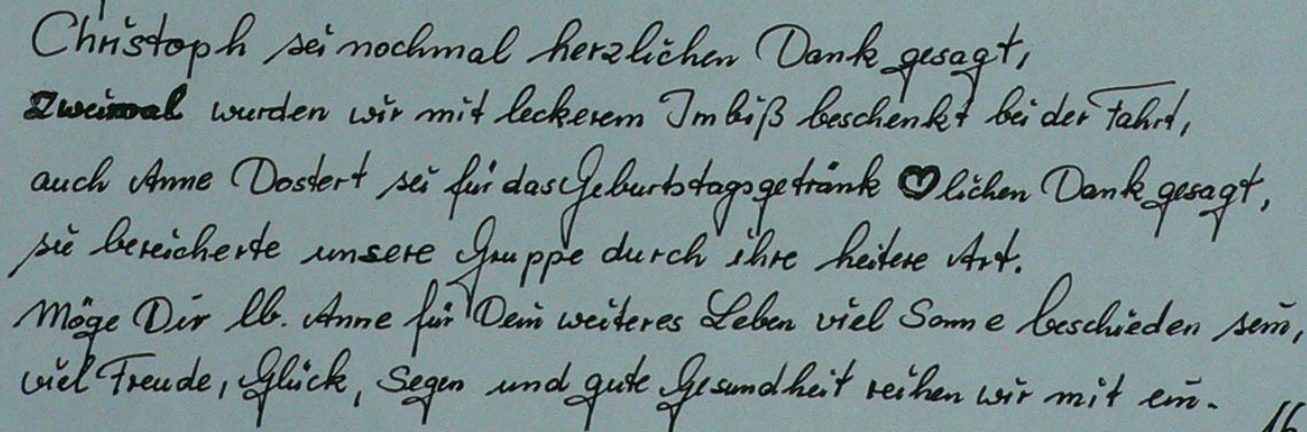 Christoph sei nochmal herzlichen Dank gesagt,
Zweimal wurden wir mit leckerem Imbiß beschenkt bei der Fahrt,
auch Anne Dostert sei für das Geburtstagsgetränk ♡lichen Dank gesagt,
sie bereicherte unsere Gruppe durch ihre heitere Art.
Möge Dir lb. Anne für Dein weiteres Leben viel Sonne beschieden sein,
viel Freude, Glück, Segen und gute Gesundheit reihen wir mit ein.
16